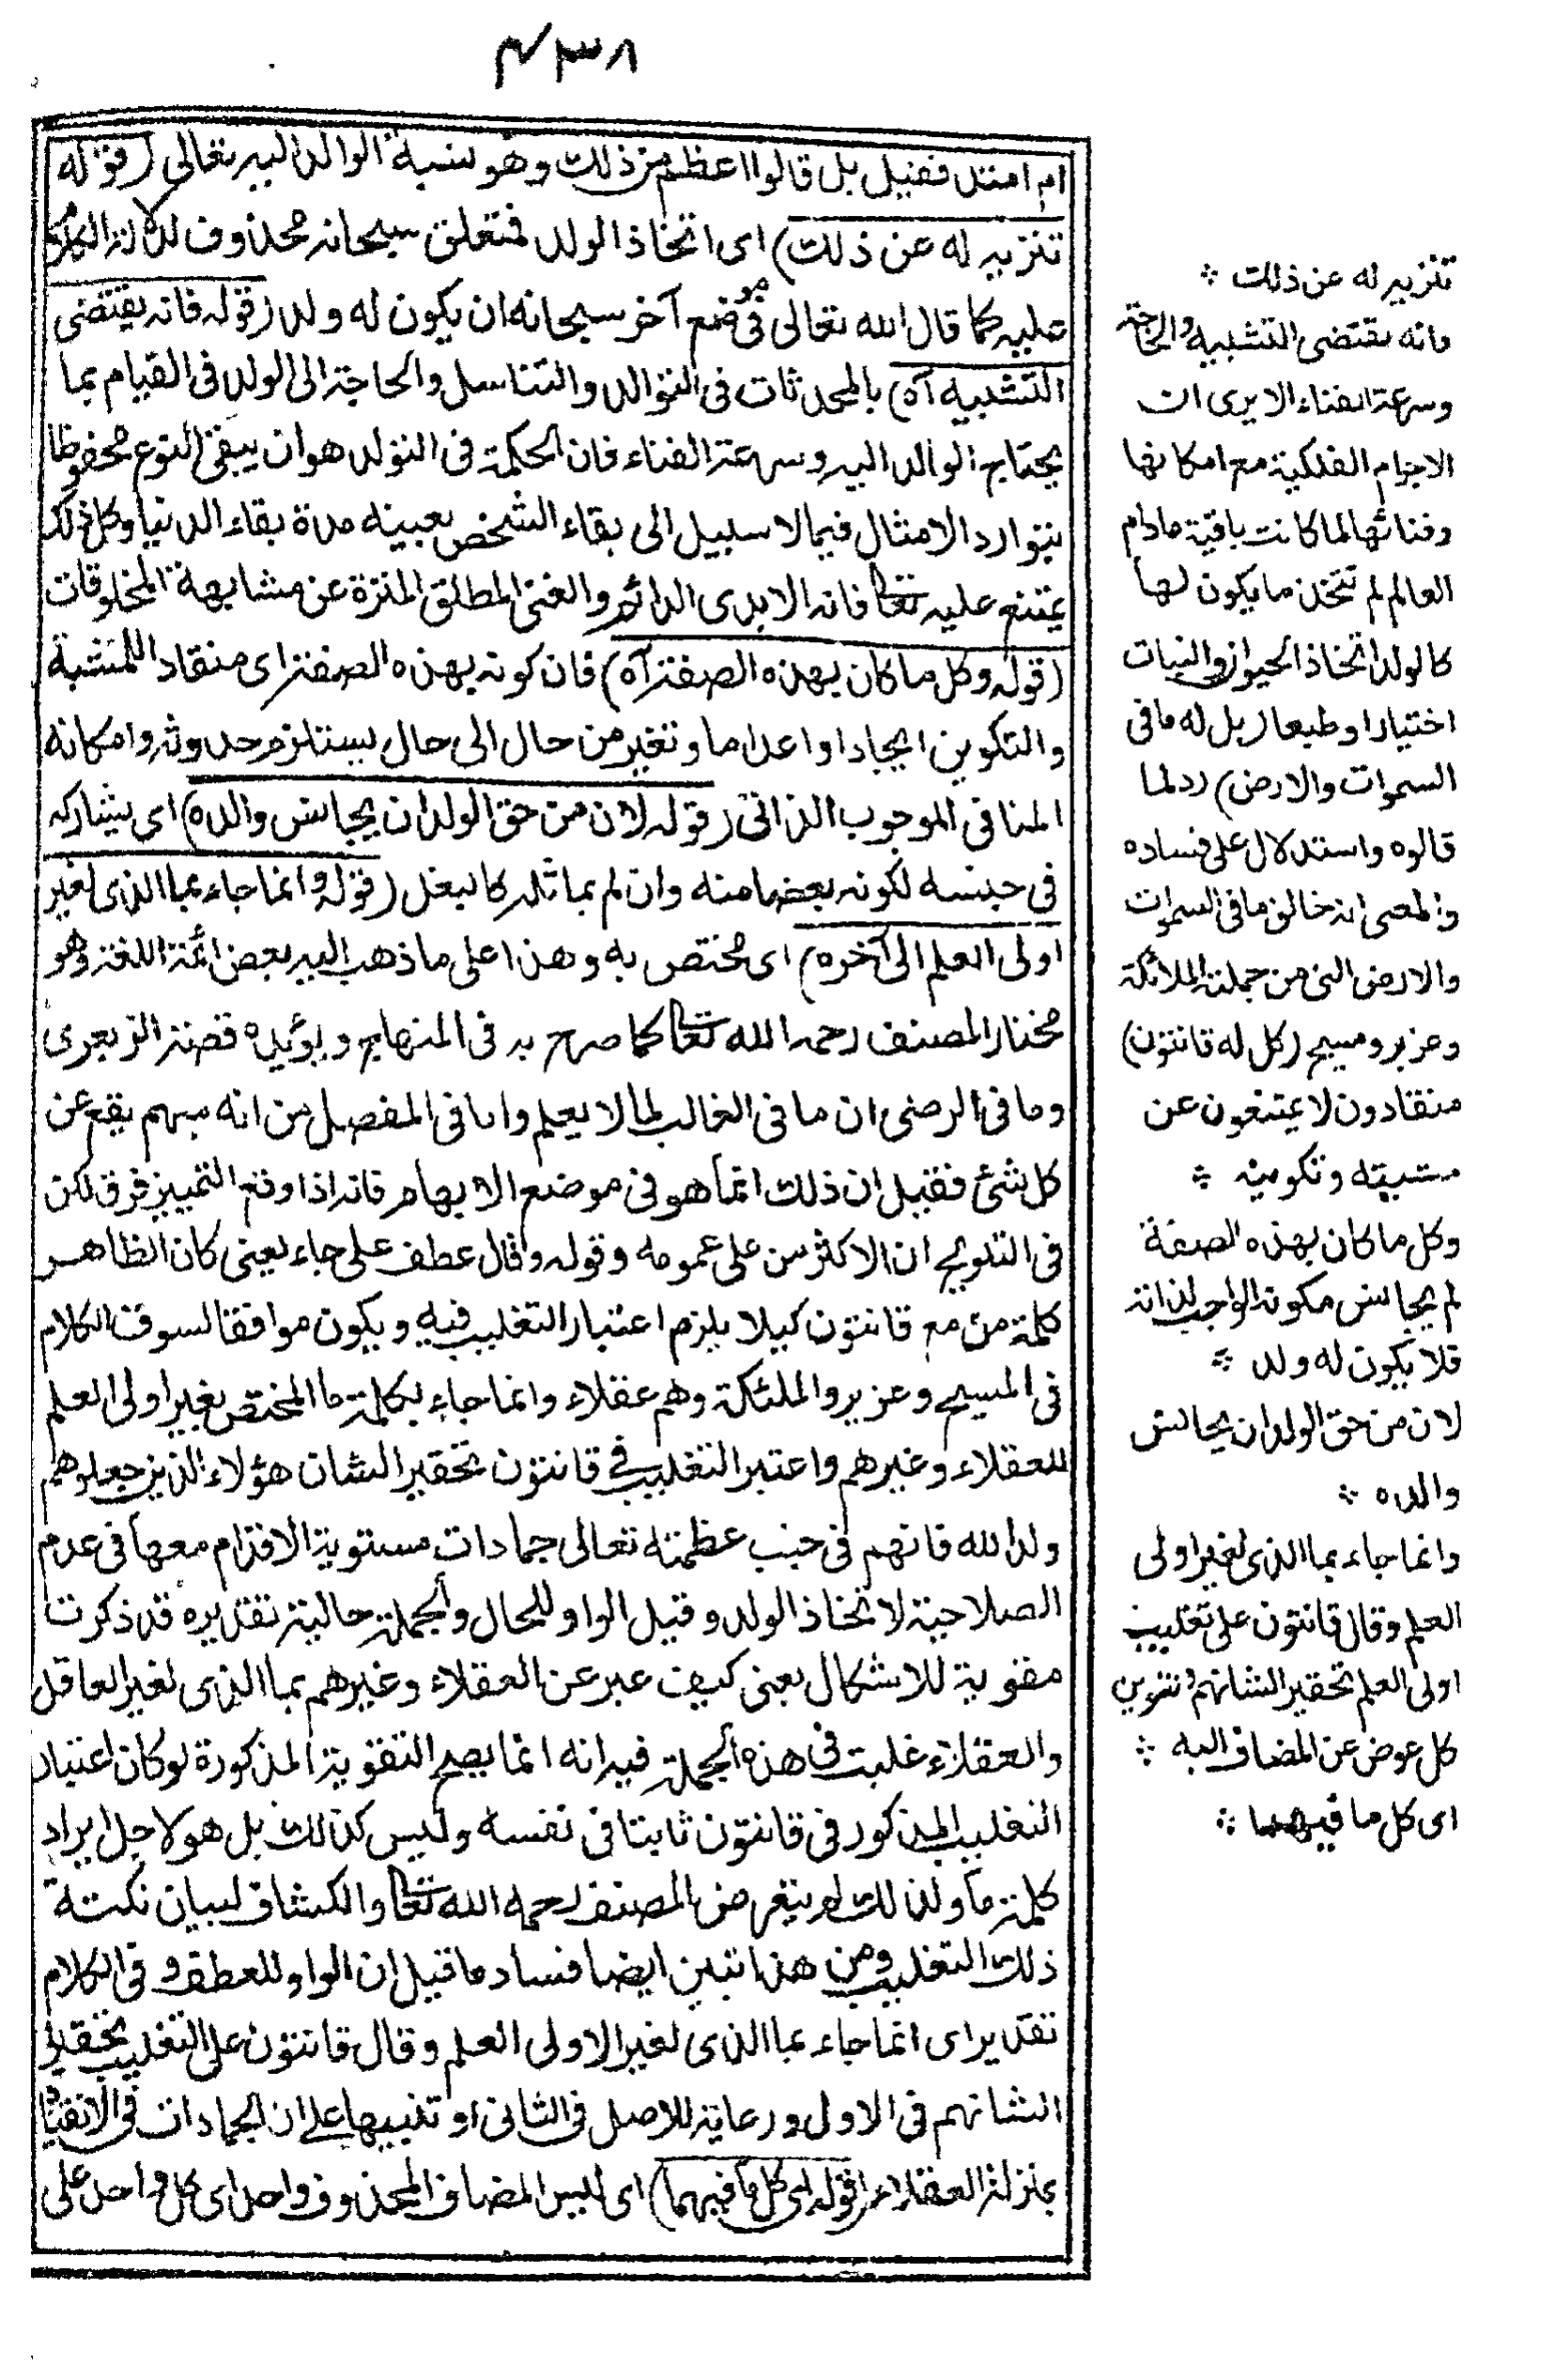 ٤٣٨
ام امتد فقيل بل قالوا اعظم من ذلك وهو نسبة الوالد اليه تعالى (قوله
تنزيه له عن ذلك) اى اتخاذ الولد فمتعلق سبحانه محذوف لدلالة الكلام
عليه كما قال الله تعالى فى موضع آخر سبحانه ان يكون له ولد (قوله فانه يقتضى
التشبيه آه) بالمحدثات فى التوالد والتناسل والحاجة الى الولد فى القيام بما
يحتاج الوالد اليه وسرعة الفناء فان الحكمة فى التولد هو ان يبقى النوع محفوظا
بتوارد الامثال فيما لا سبيل الى بقاء الشخص بعينه مدة بقاء الدنيا وكل ذلك
يمتنع عليه تعالى فانه الابدى الدائم والغنى المطلق المنزه عن مشابهة المخلوقات
(قوله وكل ما كان بهذه الصفة آه) فان كونه بهذه الصفة اى منقادا للمشية
والتكوين ايجادا او اعداما وتغير من حال الى حال يستلزم حدوثه وامكانه
المنافى للوجوب الذاتى (قوله لان من حق الولد ان يجانس والده) اى يشاركه
فى جنسه لكونه بعضا منه وان لم يماثله كالبغل (قوله وانما جاء بما الذى لغير
اولى العلم الى آخره) اى مختص به وهذا على ما ذهب اليه بعض ائمة اللغة وهو
مختار المصنف رحمه الله تعالى كما صرح به فى المنهاج ويؤيده قصة الزبعرى
وما فى الرضى ان ما فى الغالب لما لا يعلم واما فى المفصل من انه مبهم يقع عن
كل شئ فقيل ان ذلك انما هو فى موضع الابهام فانه اذا وقع التمييز فرق لكن
فى التلويح ان الاكثرين على عمومه وقوله وقال عطف على جاء يعنى كان الظاهر
كلمة من مع قانتون كيلا يلزم اعتبار التغليب فيه ويكون موافقا لسوق الكلام
فى المسيح وعزير والملئكة وهم عقلاء وانما جاء بكلمة ما المختص بغير اولى العلم
للعقلاء وغيرهم واعتبر التغليب فى قانتون تحقيرا لشان هؤلاء الذين جعلوهم
ولدا لله فانهم فى جنب عظمته تعالى جمادات مستوية الاقدام معها فى عدم
الصلاحية لاتخاذ الولد وقيل الواو للحال والجملة حالية بتقديره قد ذكرت
مقوية للاشكال يعنى كيف عبر عن العقلاء وغيرهم بما الذى لغير العاقل
والعقلاء غلبت فى هذه الجملة فيه انه انما يصح التقوية المذكورة لو كان اعتبار
التغليب المذكور فى قانتون ثابتا فى نفسه وليس كذلك بل هو لاجل ايراد
كلمة ما ولذلك لم يتعرض المصنف رحمه الله تعالى والكشاف لبيان نكتة
ذلك التغليب ومن هذا تبين ايضا فساد ما قيل ان الواو للعطف وفى الكلام
تقدير اى انما جاء بما الذى لغير الاولى العلم وقال قانتون على التغليب تحقيرا
لشانهم فى الاول ورعاية للاصل فى الثانى او تنبيها على ان الجمادات فى الانقياد
بمنزلة العقلاء (قوله اى كل ما فيهما) اى ليس المضاف المحذوف واحد اى كل واحد على
تنزيه له عن ذلك
فانه يقتضى التشبيه والحاجة
وسرعة الفناء الا يرى ان
الاجرام الفلكية مع امكانها
وفنائها لما كانت باقية مادام
العالم لم تتخذ ما يكون لها
كالولد اتخاذ الحيوان والنبات
اختيارا او طبعا (بل له ما فى
السموات والارض) رد لما
قالوه واستدلال على فساده
والمعنى انه خالق ما فى السموات
والارض التى من جملته الملائكة
وعزير ومسيح (كل له قانتون)
منقادون لا يمتنعون عن
مشيته وتكوينه
وكل ما كان بهذه الصفة
لم يجانس مكونه الواجب لذاته
فلا يكون له ولد
لان من حق الولد ان يجانس
والده
وانما جاء بما الذى لغير اولى
العلم وقال قانتون على تغليب
اولى العلم تحقيرا لشانهم وتنوين
كل عوض عن المضاف اليه
اى كل ما فيهما